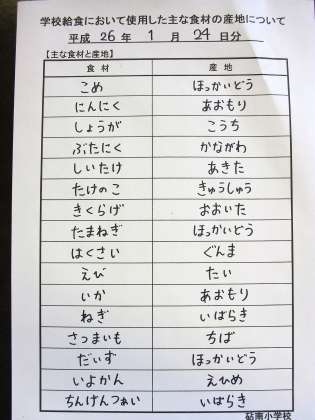 学校給食において使用した主な食材の産地について
平成 26 年 1 月 24 日分
【主な食材と産地】
食 材 産 地
こめ ほっかいどう
にんにく あおもり
しょうが こうち
ぶたにく かながわ
しいたけ あきた
たけのこ きゅうしゅう
きくらげ おおいた
たまねぎ ほっかいどう
はくさい ぐんま
えび たい
いか あおもり
ねぎ いばらき
さつまいも ちば
だいず ほっかいどう
いよかん えひめ
ちんげんつぁい いばらき
砧南小学校